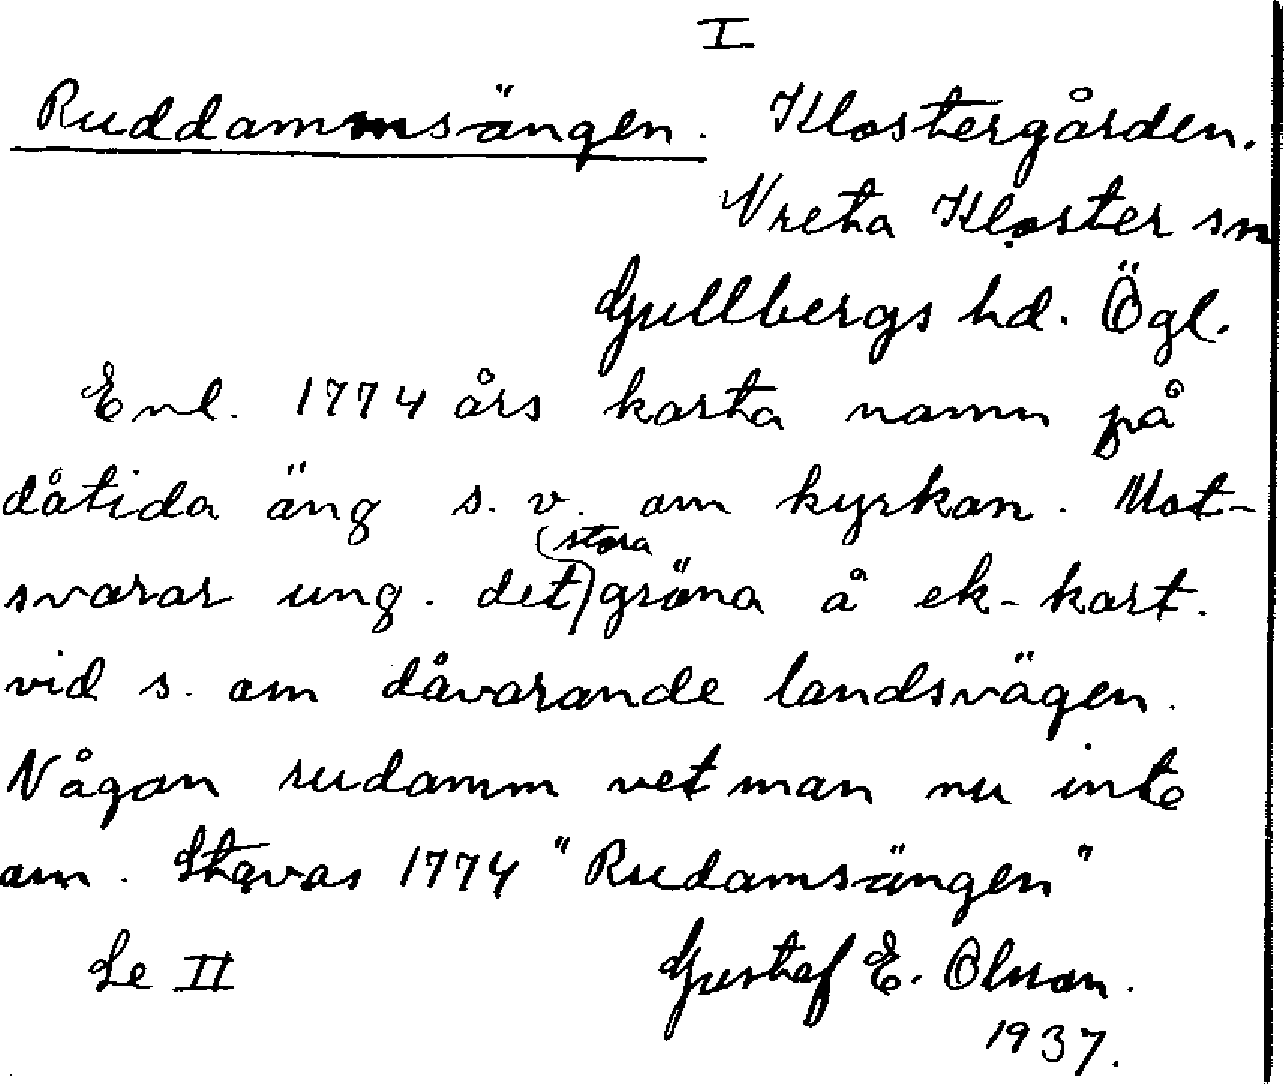 I
Ruddammsängen. Klostergården.
Vreta Kloster sn
Gullbergs hd. Ögl.
Enl. 1774 års karta namn på
dåtida äng s. v. om kyrkan. Mot-
svarar ung. det stora gröna å ek-kart.
vid s. om dåvarande landsvägen.
Någon rudamm vet man nu inte
om. Stavas 1774 "Rudamsängen"
Se II Gustaf E. Olsson.
1937.